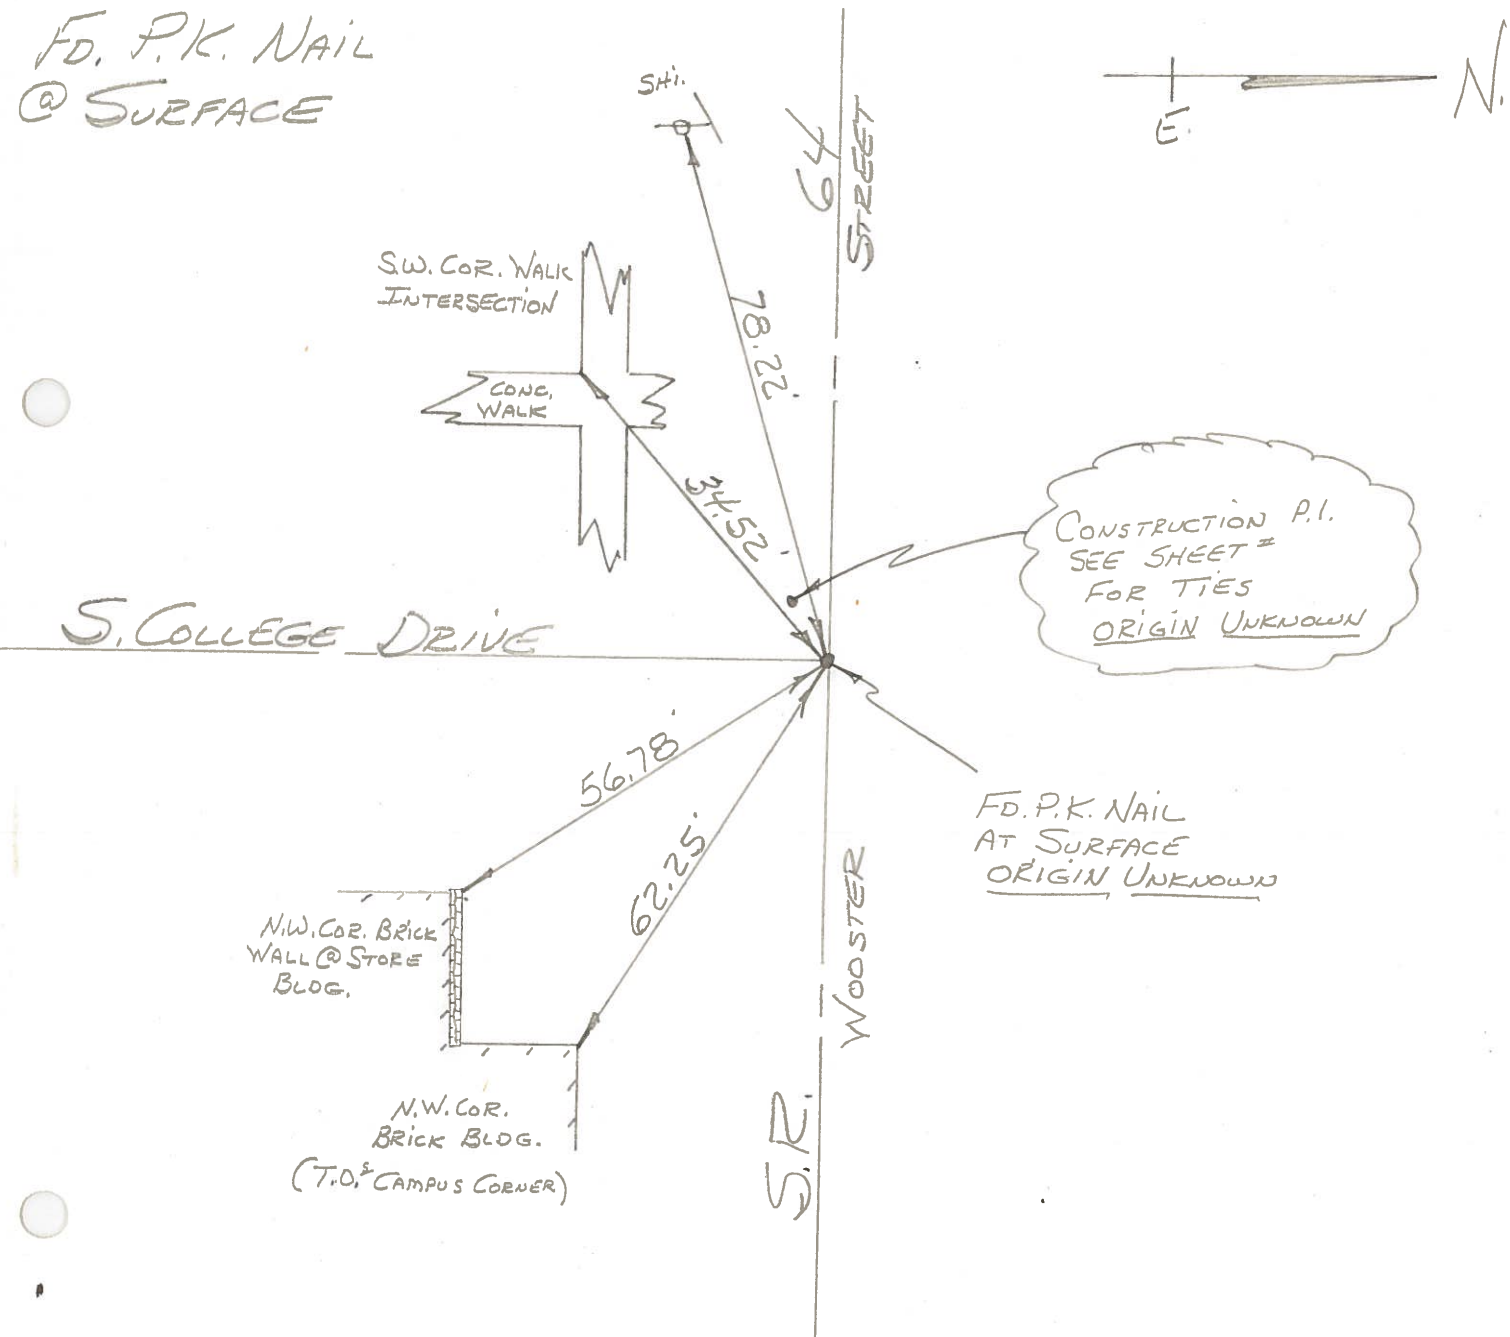 FD. P.K. NAIL
@ SURFACE
SHI.
N.
E.
64
STREET
S.W. COR. WALK
INTERSECTION
CONC.
WALK
78.22'
34.52'
CONSTRUCTION P.I.
SEE SHEET #
FOR TIES
ORIGIN UNKNOWN
S. COLLEGE DRIVE
56.78'
62.25'
FD. P.K. NAIL
AT SURFACE
ORIGIN UNKNOWN
N.W. COR. BRICK
WALL @ STORE
BLDG.
WOOSTER
N.W. COR.
BRICK BLDG.
(T.O.'S CAMPUS CORNER)
S.R.